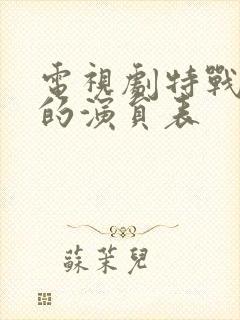 電視劇特戰
的演員表
蘇茉兒